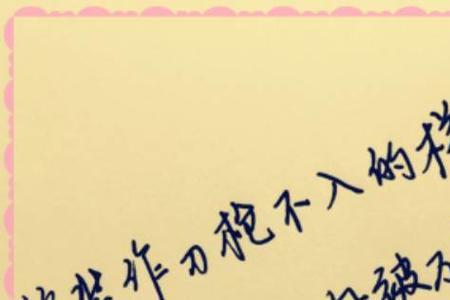 装作刀枪不入的样
被